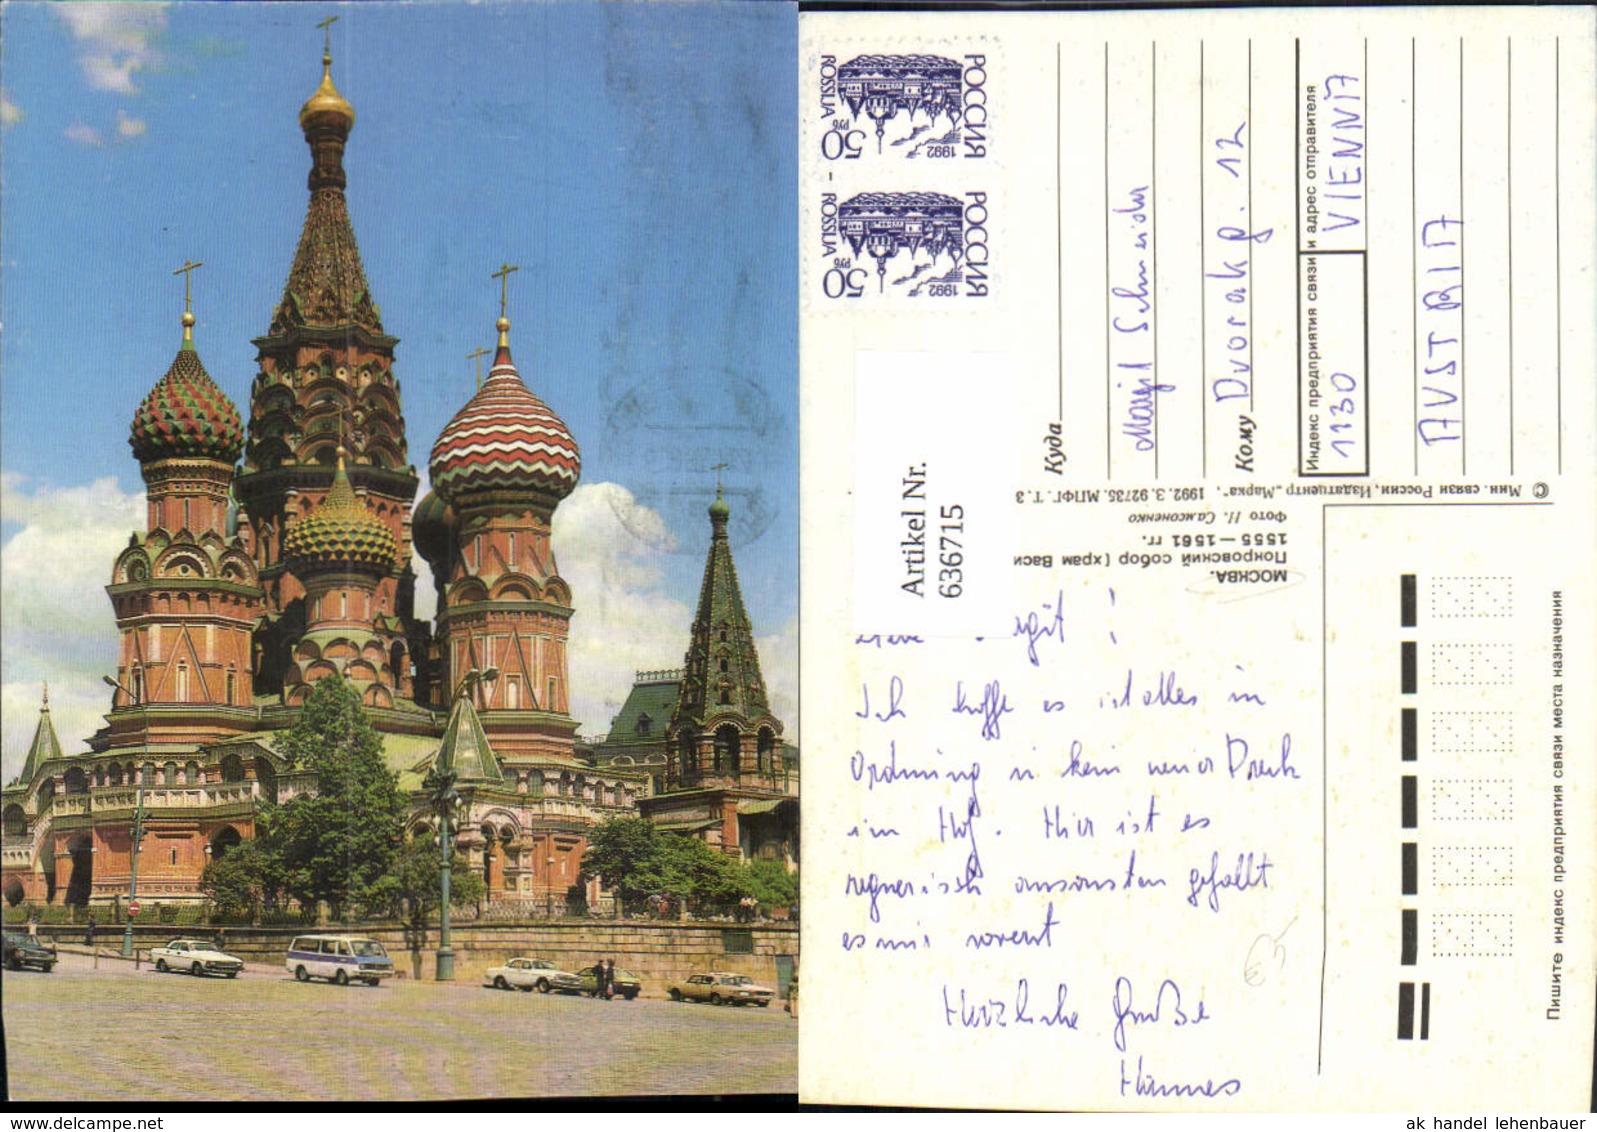 РОССИЯ
1992
50
РУБ
ROSSIJA
РОССИЯ
1992
50
РУБ
ROSSIJA
Artikel Nr.
636715
Куда
Margit Schneider
Кому Dvorakg. 12
Индекс предприятия связи и адрес отправителя
1130 VIENNA
AUSTRIA
© Мин. связи России, Издатцентр „Марка", 1992. З. 92735. МПФГ. Т. 3
МОСКВА.
Покровский собор (храм Васи
1555—1561 гг.
Фото Н. Самсоненко
Пишите индекс предприятия связи места назначения
rgit !
Ich hoffe es ist alles in
Ordnung u kein neuer Dreck
im Hof. Hier ist es
regnerisch ansonsten gefällt
es mir soweit
Herzliche Grüße
Hannes
€3
ak handel lehenbauer